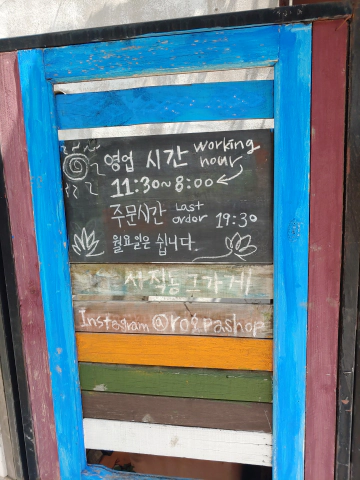 영업 시간 working hour
11:30~8:00
주문시간 Last order 19:30
월요일은 쉽니다.
사직동그가게
Instagram @rogpashop